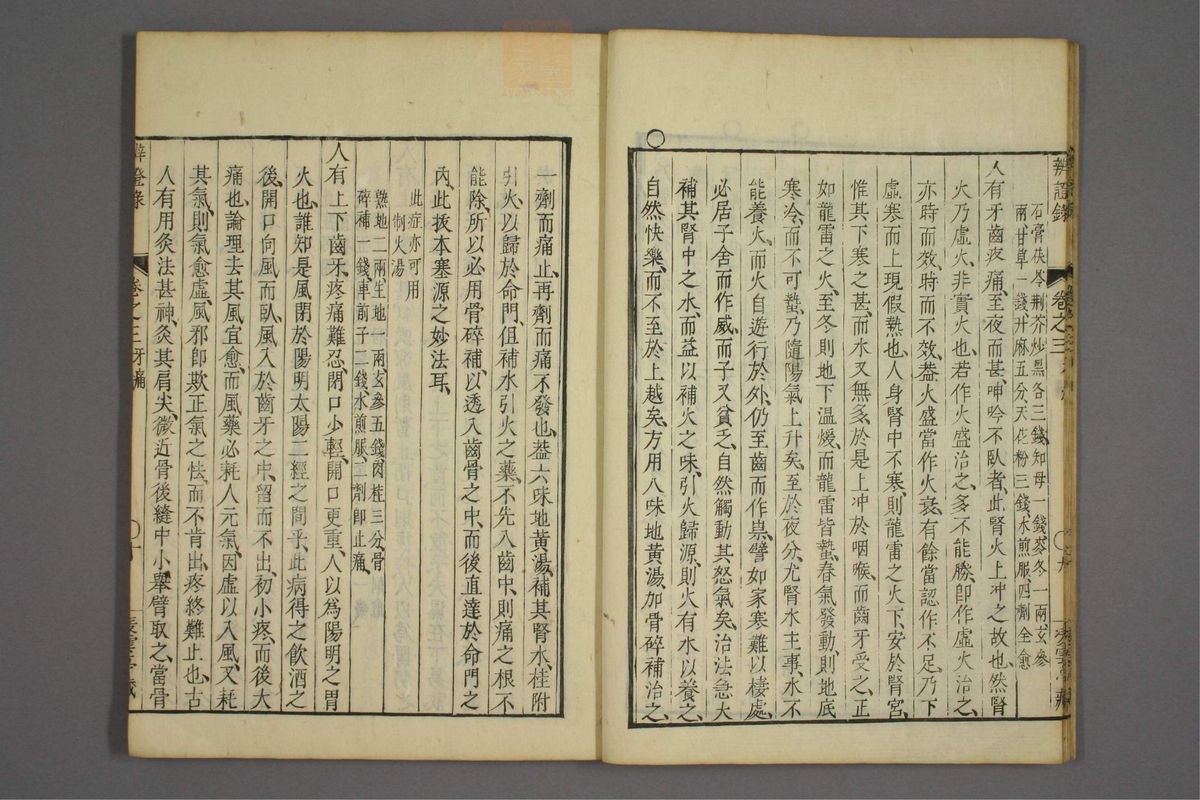 辨證錄 卷之三
石膏茯苓荆芥炒黑各三錢知母一錢麥冬一兩玄參
兩甘草一錢升麻五分天花粉三錢水煎服四劑全愈
人有牙齒疼痛至夜而甚呻吟不臥者此腎火上冲之故也然腎
火乃虛火非實火也若作火盛治之多不能勝卽作虛火治之
亦時而效時而不效葢火盛當作火衰有餘當認作不足乃下
虛寒而上現假熱也人身腎中不寒則龍雷之火下安於腎宮
惟其下寒之甚而水又無多於是上冲於咽喉而齒牙受之正
如龍雷之火至冬則地下温煖而龍雷皆蟄春氣發動則地底
寒冷而不可蟄乃隨陽氣上升矣至於夜分尤腎水主事水不
能養火而火自遊行於外仍至齒而作祟譬如家寒難以棲處
必居子舍而作威而子又貧乏自然觸動其怒氣矣治法急大
補其腎中之水而益以補火之味引火歸源則火有水以養之
自然快樂而不至於上越矣方用八味地黃湯加骨碎補治之
一劑而痛止再劑而痛不發也葢六味地黃湯補其腎水桂附
引火以歸於命門但補水引火之藥不先入齒中則痛之根不
能除所以必用骨碎補以透入齒骨之中而後直達於命門之
內此拔本塞源之妙法耳
此症亦可用
制火湯
熟地二兩生地一兩玄參五錢肉桂三分骨
碎補一錢車前子二錢水煎服二劑卽止痛
人有上下齒牙疼痛難忍閉口少輕開口更重人以爲陽明之胃
火也誰知是風閉於陽明太陽二經之間乎此病得之飲酒之
後開口向風而臥風入於齒牙之中留而不出初小疼而後大
痛也論理去其風宜愈而風藥必耗人元氣因虛以入風又耗
其氣則氣愈虛風邪卽欺正氣之怯而不肯出疼終難止也古
人有用灸法甚神灸其肩尖微近骨後縫中小舉臂取之當骨
辨證錄 卷之三牙痛